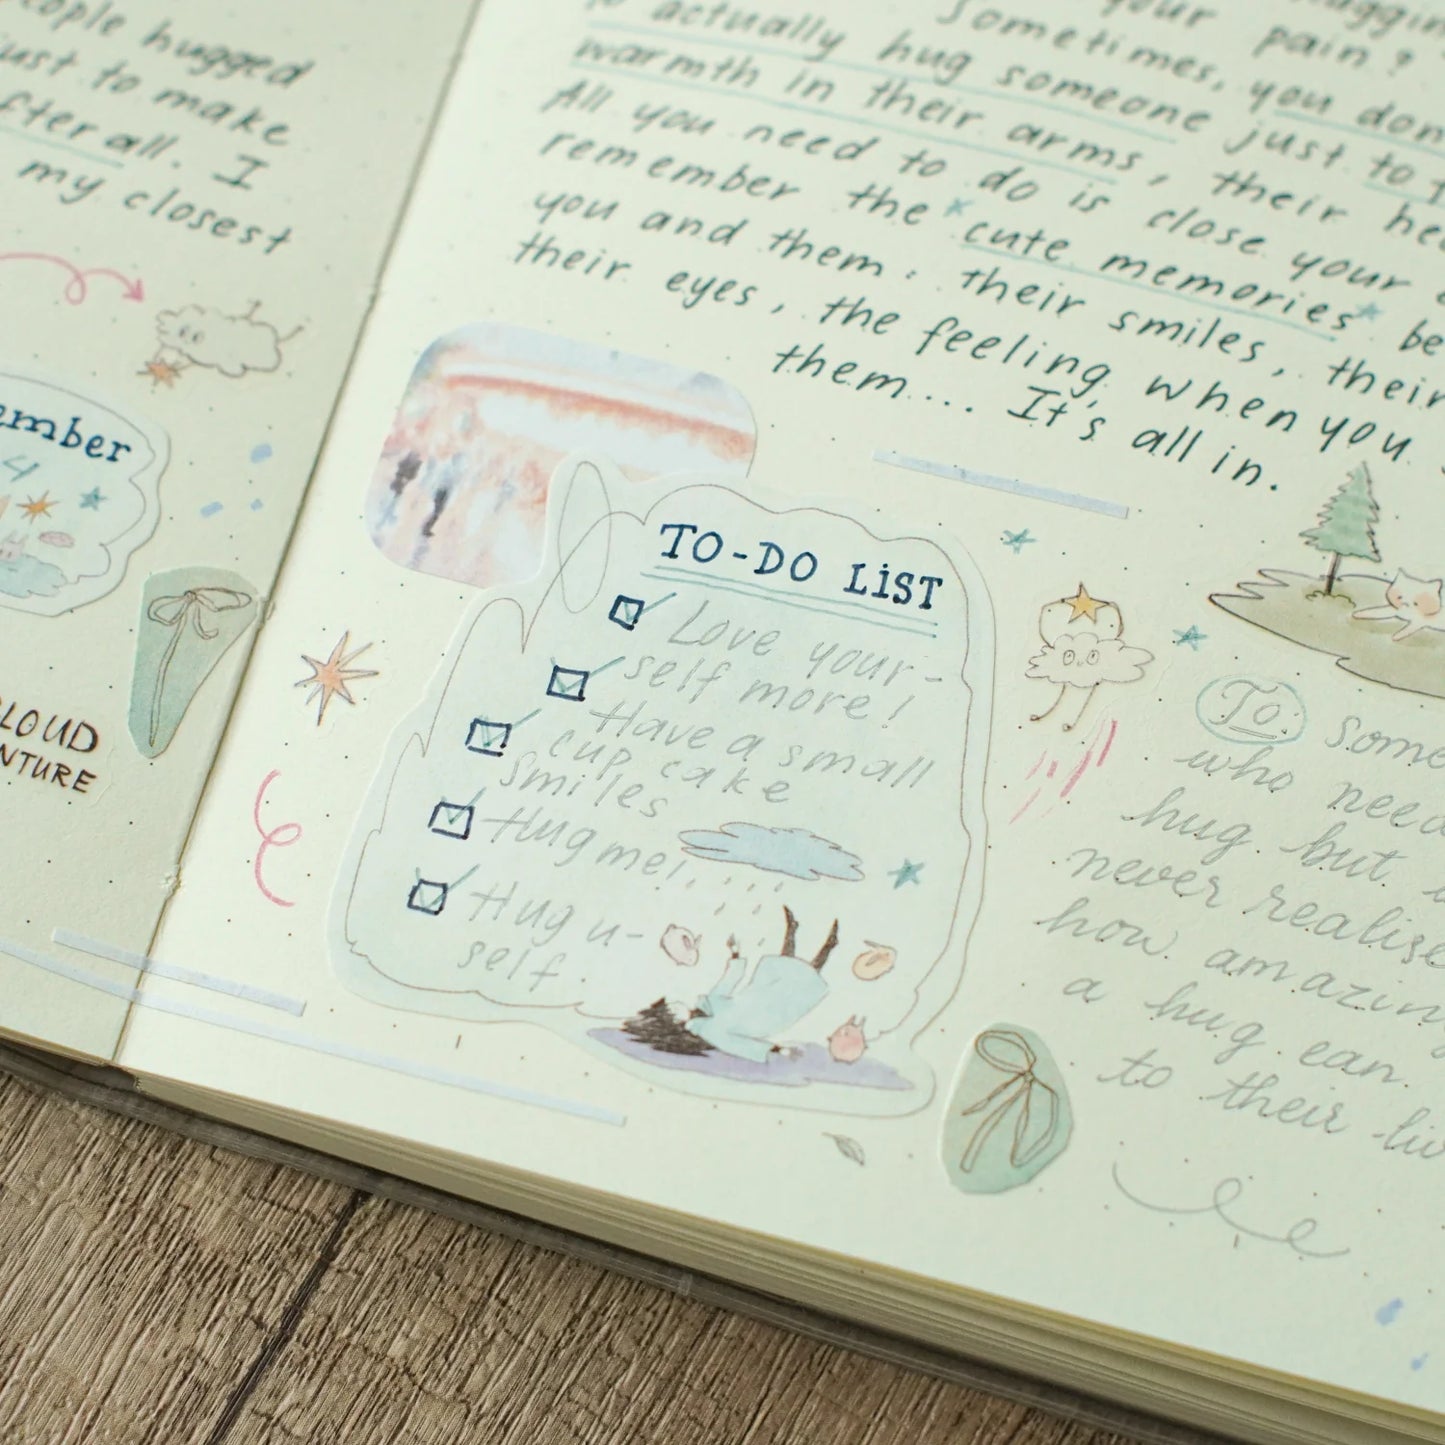 hugged
just to make
after all. I
my closest
ember
4
CLOUD
your pain?
Sometimes, you don
to actually hug someone just to
warmth in their arms, their
All you need to do is close your
remember the cute memories be
you and them: their smiles, their
their eyes, the feeling, when you
them.... It's all in.
TO-DO LiST
Love your-
self more!
Have a small
cup cake
smiles
Hug me!
Hug u-
self.
To
who need
hug but
never realise
how amazing
a hug can.
to their